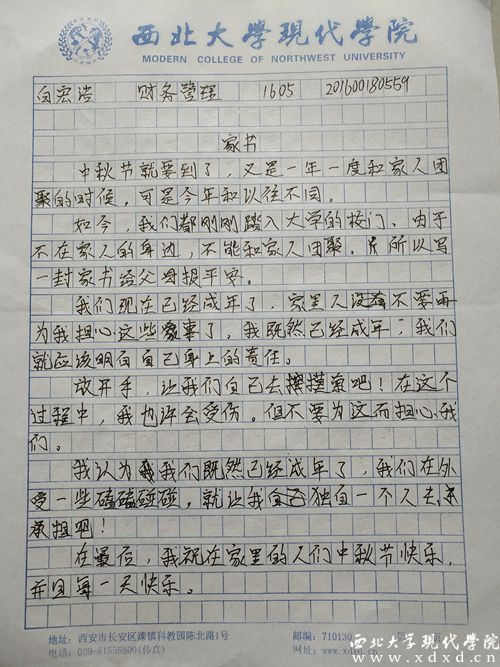 西北大学现代学院
MODERN COLLEGE OF NORTHWEST UNIVERSITY
白宏浩 财务管理 1605 201600180559
家书
中秋节就要到了，又是一年一度和家人团
聚的时候，可是今年和以往不同。
如今，我们都刚刚踏入大学的校门、由于
不在家人的身边，不能和家人团聚。所以写
一封家书给父母报平安。
我们现在已经成年了，家里人不要再
为我担心这些家事了。我既然已经成年；我们
就应该明白自己身上的责任。
放开手，让我们自己去摸索吧！在这个
过程中，我也许会受伤。但不要为这而担心我
们。
我认为我们既然已经成年了，我们在外
受一些磕磕碰碰，就让我独自一个人去
承担吧！
在最后，我祝在家里的人们中秋节快乐，
并且每一天快乐。
地址：西安市长安区滦镇科教园陈北路1号
邮编：710130
电话：029-81555800(传真)
网址：www.xdxd.cn
西北大学现代学院
www.xdxd.cn